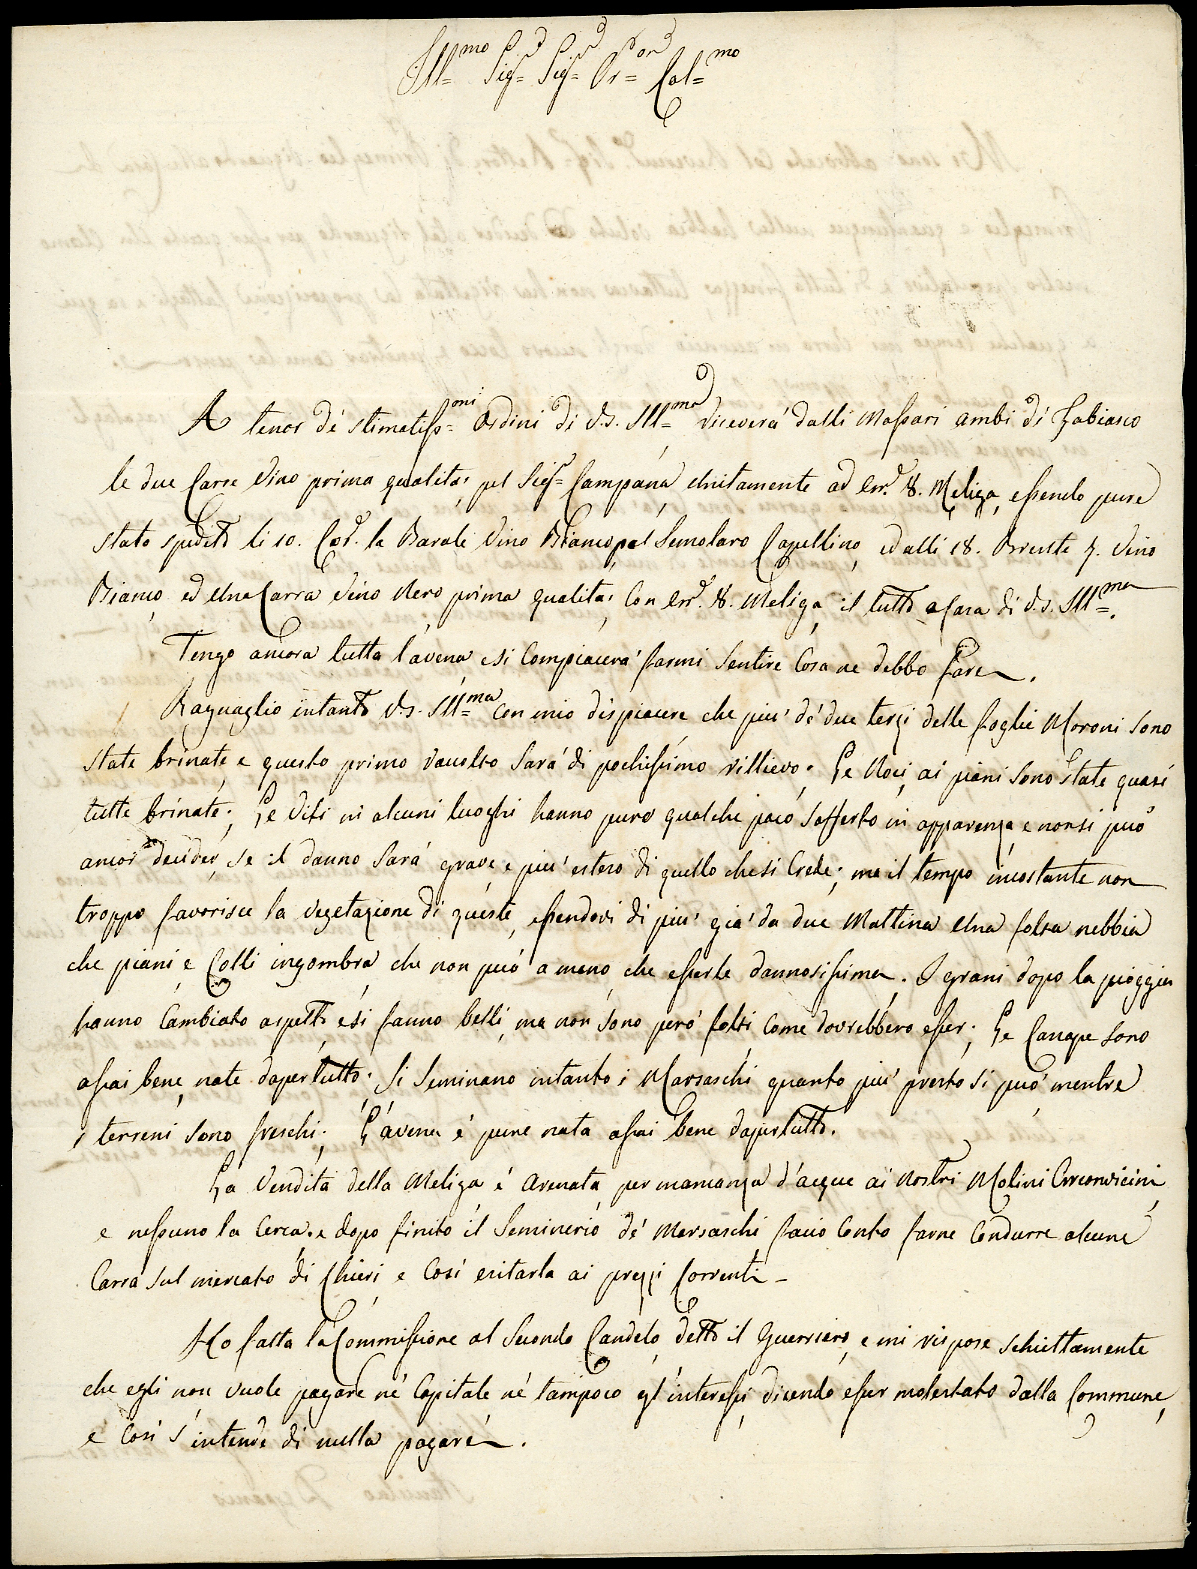 Ill:mo Sig:r Sig:r Pr:on Col:mo
A tenor de' stimatiss:mi Ordini di V.S. Ill:ma riceverà dalli Massari ambi di Fabiasco
le due Carre Vino prima qualità, pel Sig:r Campana unitamente ad Em: 8. Meliga, essendo pure
stato spedito li 10. Cor:e la Barale Vino Bianco pel Semolaro Capellino, ed alli 18. Brente 7. Vino
Bianco ed Una Carra Vino Nero prima qualità, Con Em: 8. Meliga, il tutto a Casa di V.S. Ill:ma.
Tengo ancora tutta l'avena e si Compiacerà farmi Sentire Cosa ne debbo fare.
Raguaglio intanto V.S. Ill:ma Con mio dispiacere che più de' due terzi delle foglie Moroni sono
state brinate e questo primo raccolto Sarà di pochissimo rillievo. Le Noci ai piani Sono State quasi
tutte brinate; Le Viti in alcuni luoghi hanno pure qualche poco Sofferto in apparenza e non si può
ancor decider, Se il danno Sarà grave e più esteso di quello che si Crede; ma il tempo incostante non
troppo favorisce la vegetazione di queste, essendovi di più già da due Mattina Una folta nebbia
che piani e Colli ingombra che non può a meno che esserle dannosissima. I grani dopo la pioggia
hanno Cambiato aspetto e si fanno belli, ma non Sono però folti Come dovrebbero esser; Le Canape Sono
assai bene nate dapertutto. Si Seminano intanto i Marsaschi quanto più presto Si può mentre
i terreni Sono freschi; L'avena è pure nata assai bene dapertutto.
La Vendita della Meliga è Arenata per mancanza d'acque ai Nostri Molini Circonvicini,
e nessuno la Cerca, e dopo finito il Seminerio de' Marsaschi faccio Conto farne Condurre alcune
Carra sul mercato di Chieri e Così esitarla ai prezzi Correnti.
Ho fatta la Commissione al Secondo Candelo detto il Guerriero, e mi rispose schiettamente
che egli non vuole pagare né Capitale né tampoco gl'interessi dicendo esser molestato dalla Commune,
e Così S'intende di nulla pagare.